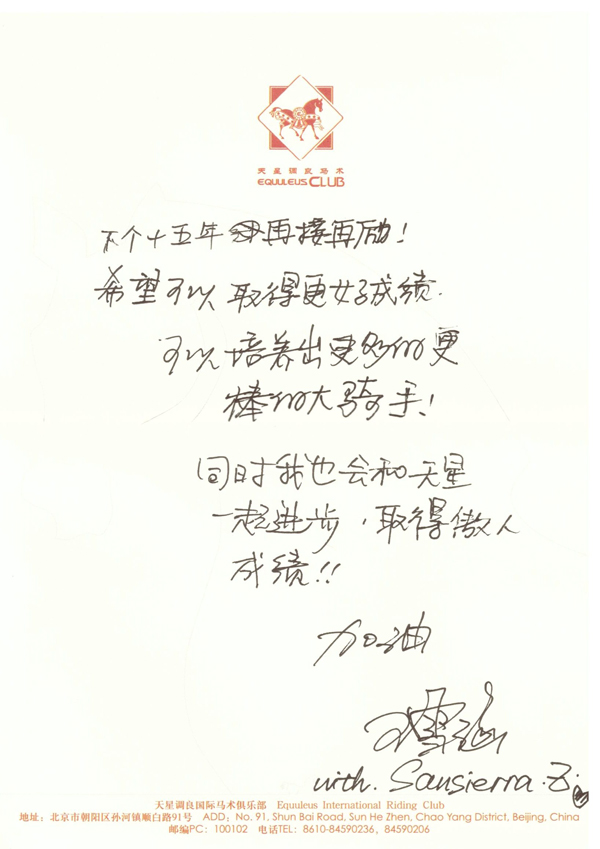 天星调良马术
EQUULEUS CLUB
下个十五年再接再励！
希望可以取得更好成绩.
可以培养出更多的更
棒的大骑手！
同时我也会和天星
一起进步，取得傲人
成绩！！
加油
with. Sansierra.Z.
天星调良国际马术俱乐部 Equuleus International Riding Club
地址：北京市朝阳区孙河镇顺白路91号 ADD：No. 91, Shun Bai Road, Sun He Zhen, Chao Yang District, Beijing, China
邮编PC：100102 电话TEL：8610-84590236，84590206